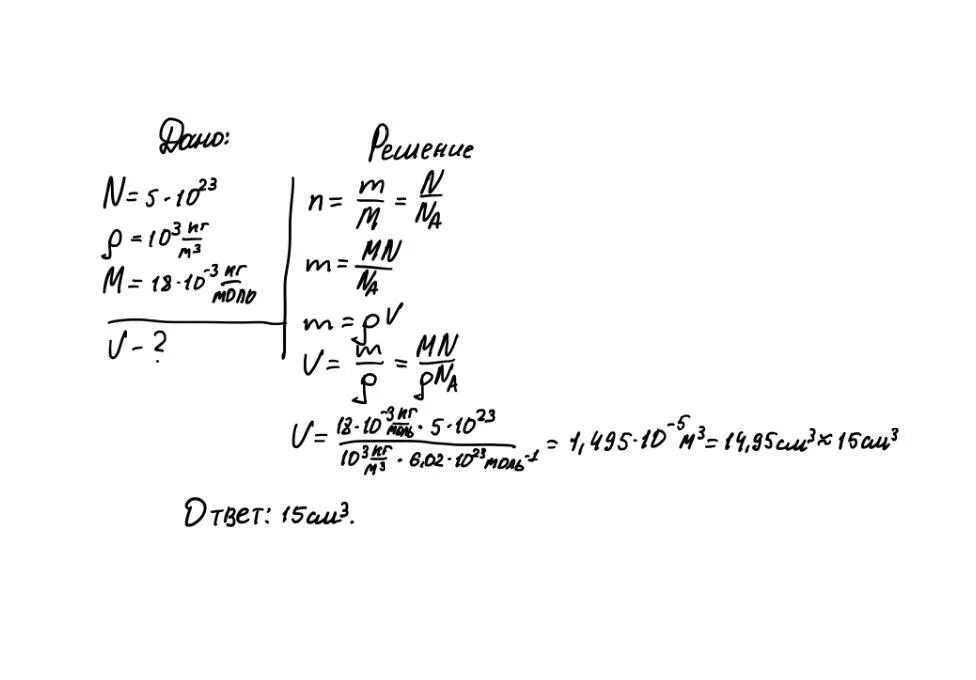 Дано:
N = 5 · 10²³
ρ = 10³ кг/м³
M = 18 · 10⁻³ кг/моль
V - ?
Решение
n = m/M = N/N_A
m = MN/N_A
m = ρV
V = m/ρ = MN/ρN_A
V = (18 · 10⁻³ кг/моль · 5 · 10²³)/(10³ кг/м³ · 6,02 · 10²³ моль⁻¹) = 1,495 · 10⁻⁵ м³ = 14,95 см³ × 15 см³
Ответ: 15 см³.